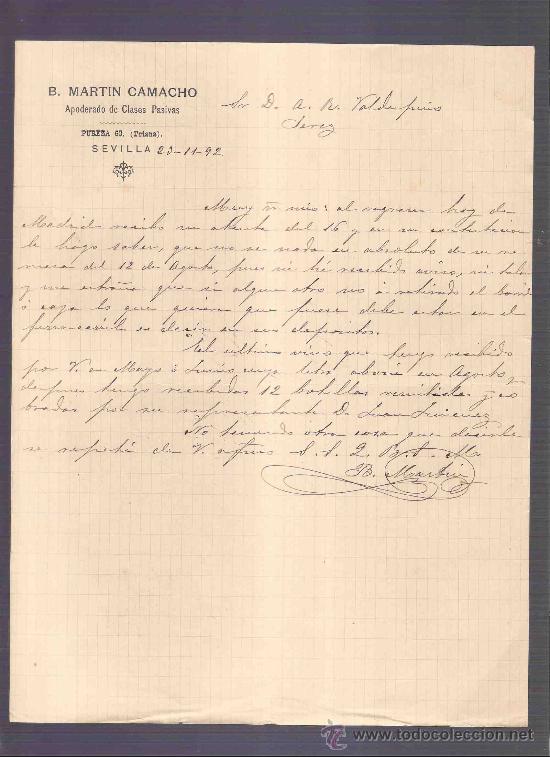 B. MARTIN CAMACHO
Apoderado de Clases Pasivas
PUREZA 60. (Triana).
SEVILLA 23-11-92
Sr D. A. R. Valdespino
Jerez
Muy Sr mio: al regresar hoy de
Madrid recibo su atenta del 16 y en su contestacion
le hago saber, que no se nada en absoluto de su re
mesa del 12 de Agosto, pues ni hé recibido aviso, ni talon
y me estraña que si algun otro no á retirado el barril
ó caja lo que quiera que fuese debe estar en el
ferro-carril es decir en sus depositos.
El ultimo vino que tengo recibido
por V. en Mayo ó Junio cuya letra aboné en Agosto, y
despues tengo recibidas 12 botellas remitidas y co
bradas por su representante D. Juan Jimenez
No teniendo otra cosa que desearle
se repite de V. afmo S. S. Q. B. S. M.
B. Martin
www.todocoleccion.net